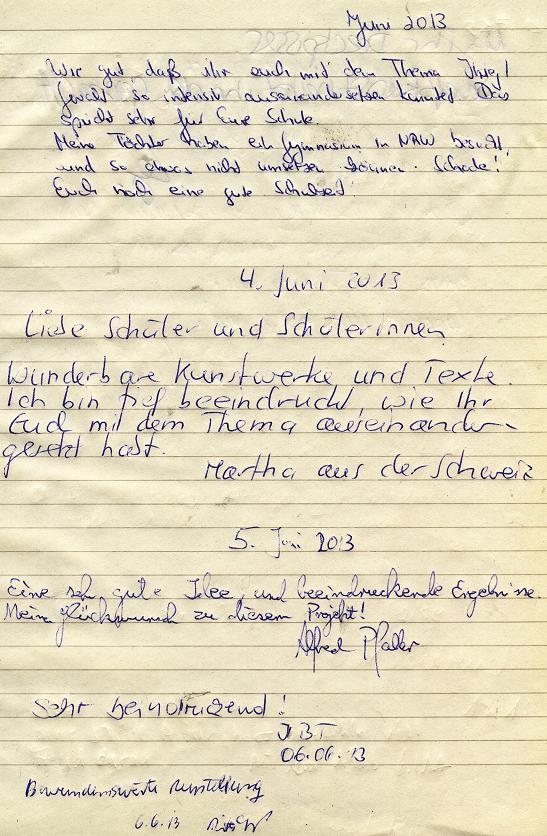 Juni 2013
Wie gut, daß ihr euch mit dem Thema Krieg/
Gewalt so intensiv auseinandersetzen konntet. Das
spricht sehr für Eure Schule.
Meine Töchter haben ein Gymnasium in NRW besucht,
und so etwas nicht umsetzen können. Schade!
Euch noch eine gute Schulzeit!
4. Juni 2013
Liebe Schüler und Schülerinnen
Wunderbare Kunstwerke und Texte.
Ich bin tief beeindruckt, wie Ihr
Euch mit dem Thema auseinander-
gesetzt habt.
Martha aus der Schweiz
5. Juni 2013
Eine sehr gute Idee und beeindruckende Ergebnisse.
Meinen Glückwunsch zu diesem Projekt!
Alfred Pfaller
Sehr beindruckend!
JBT
06.06.13
Bewundernswerte Ausstellung
6.6.13